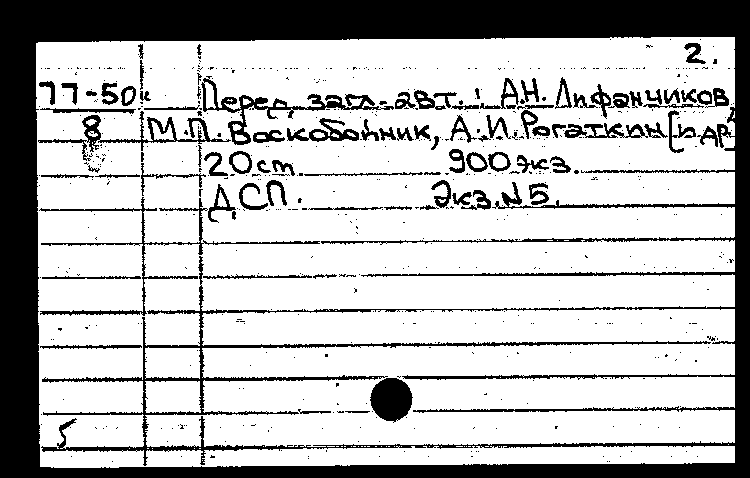 2.
77-50 Перед загл. авт.: А.Н. Лифанчиков,
8 М.П. Воскобойник, А.И. Рогаткин [и др.]
20 cm 900 экз.
ДСП. Экз. № 5.
5